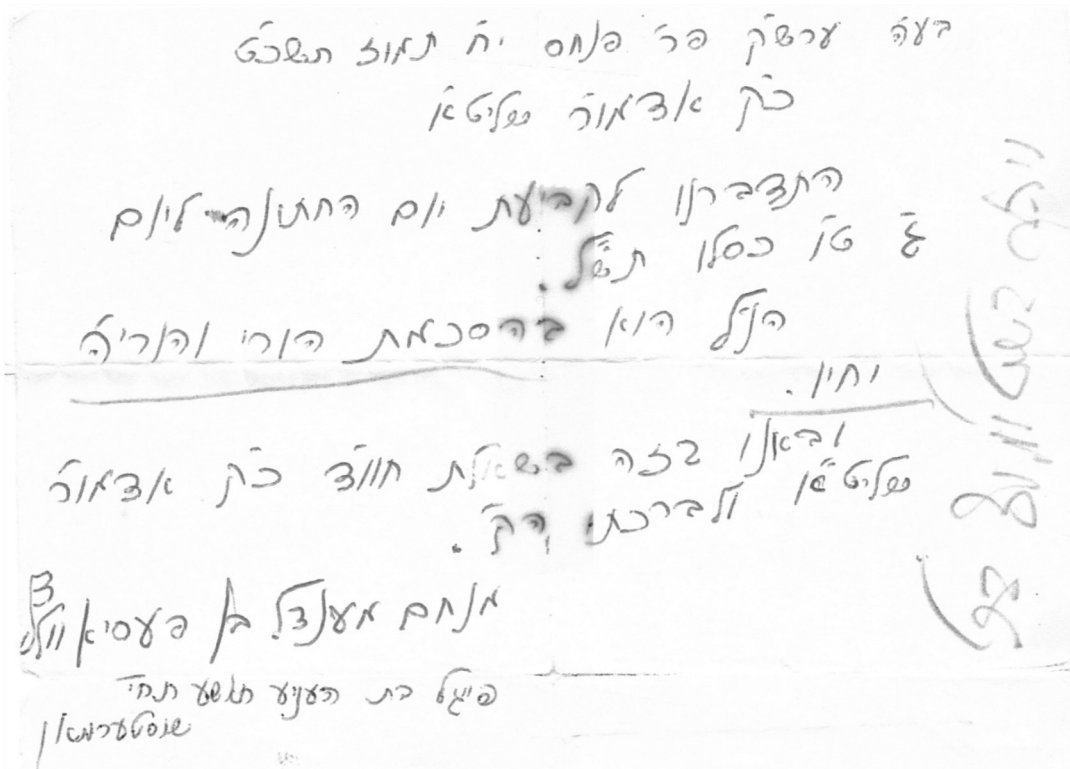 בע"ה ערש"ק פר' פנחס י"ח תמוז תשכ"ט
כ"ק אדמו"ר שליט"א
התדברנו לקביעת יום החתונה ליום
ג' ט"ו כסלו תש"ל.
הנ"ל הוא בהסכמת הורי והורי'
יחיו.
ובאנו בזה בשאלת חוו"ד כ"ק אדמו"ר
שליט"א ולברכתו הק'.
מנחם מענדל בן פעסיא
פייגל בת העניע תחי'
שוסטערמאן